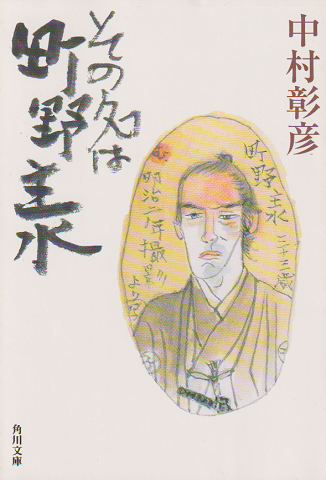 中村彰彦
その名は
町野主水
町野主水
二十三歳
明治二年撮影
より
角川文庫